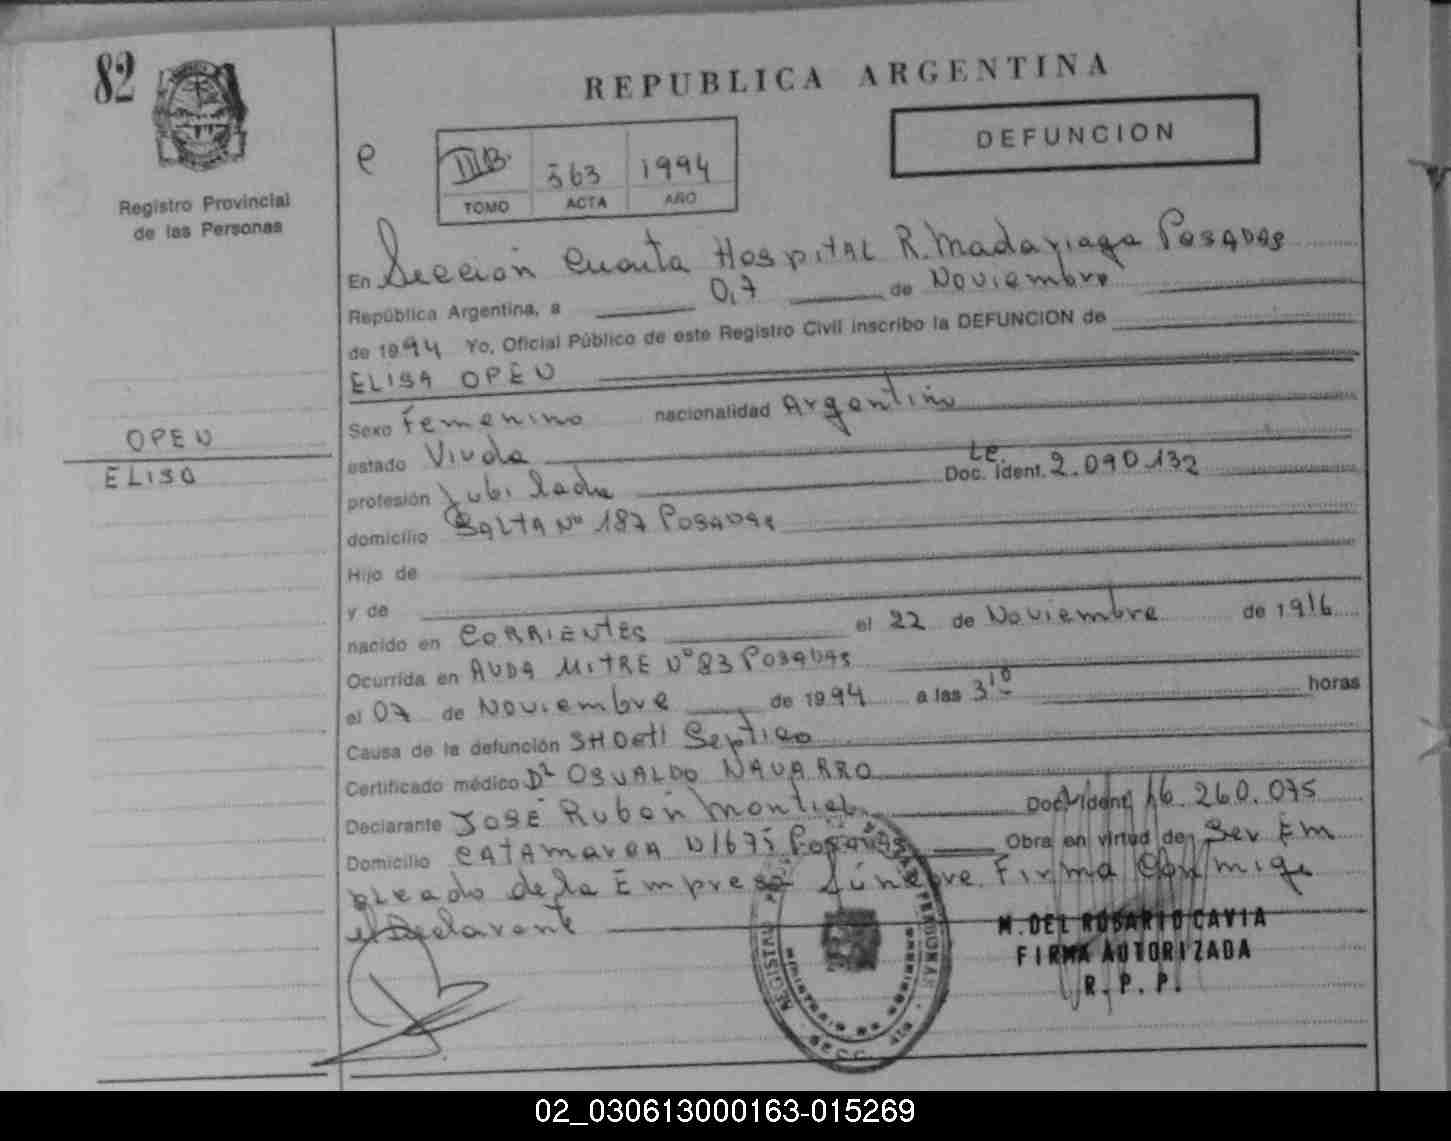 82
REPUBLICA ARGENTINA
DEFUNCION
e
IIIB. 563 1994
TOMO ACTA AÑO
Registro Provincial
de las Personas
En Sección Cuarta Hospital R. Madariaga Posadas
República Argentina, a 07 de Noviembre
de 1994 Yo, Oficial Público de este Registro Civil inscribo la DEFUNCION de
ELISA OPEN
Sexo Femenino nacionalidad Argentina
OPEN
ELISA
estado Viuda
profesión Jubilada Doc. Ident. L.C. 2.090.132
domicilio SALTA Nº 187 POSADAS
Hijo de
y de
nacido en CORRIENTES el 22 de Noviembre de 1916
Ocurrida en AVDA MITRE Nº 83 POSADAS
el 07 de Noviembre de 1994 a las 3 10 horas
Causa de la defunción SHOCK Septico
Certificado médico Dr OSVALDO NAVARRO
Declarante JOSÉ Rubén Montiel Doc. Ident. 16.260.075
Domicilio CATAMARCA N1675 Posadas Obra en virtud de Ser Em
pleado de la Empresa Fúnebre. Firma Conmigo
el Declarante
M. DEL ROSARIO CAVIA
FIRMA AUTORIZADA
R. P. P.
02_030613000163-015269